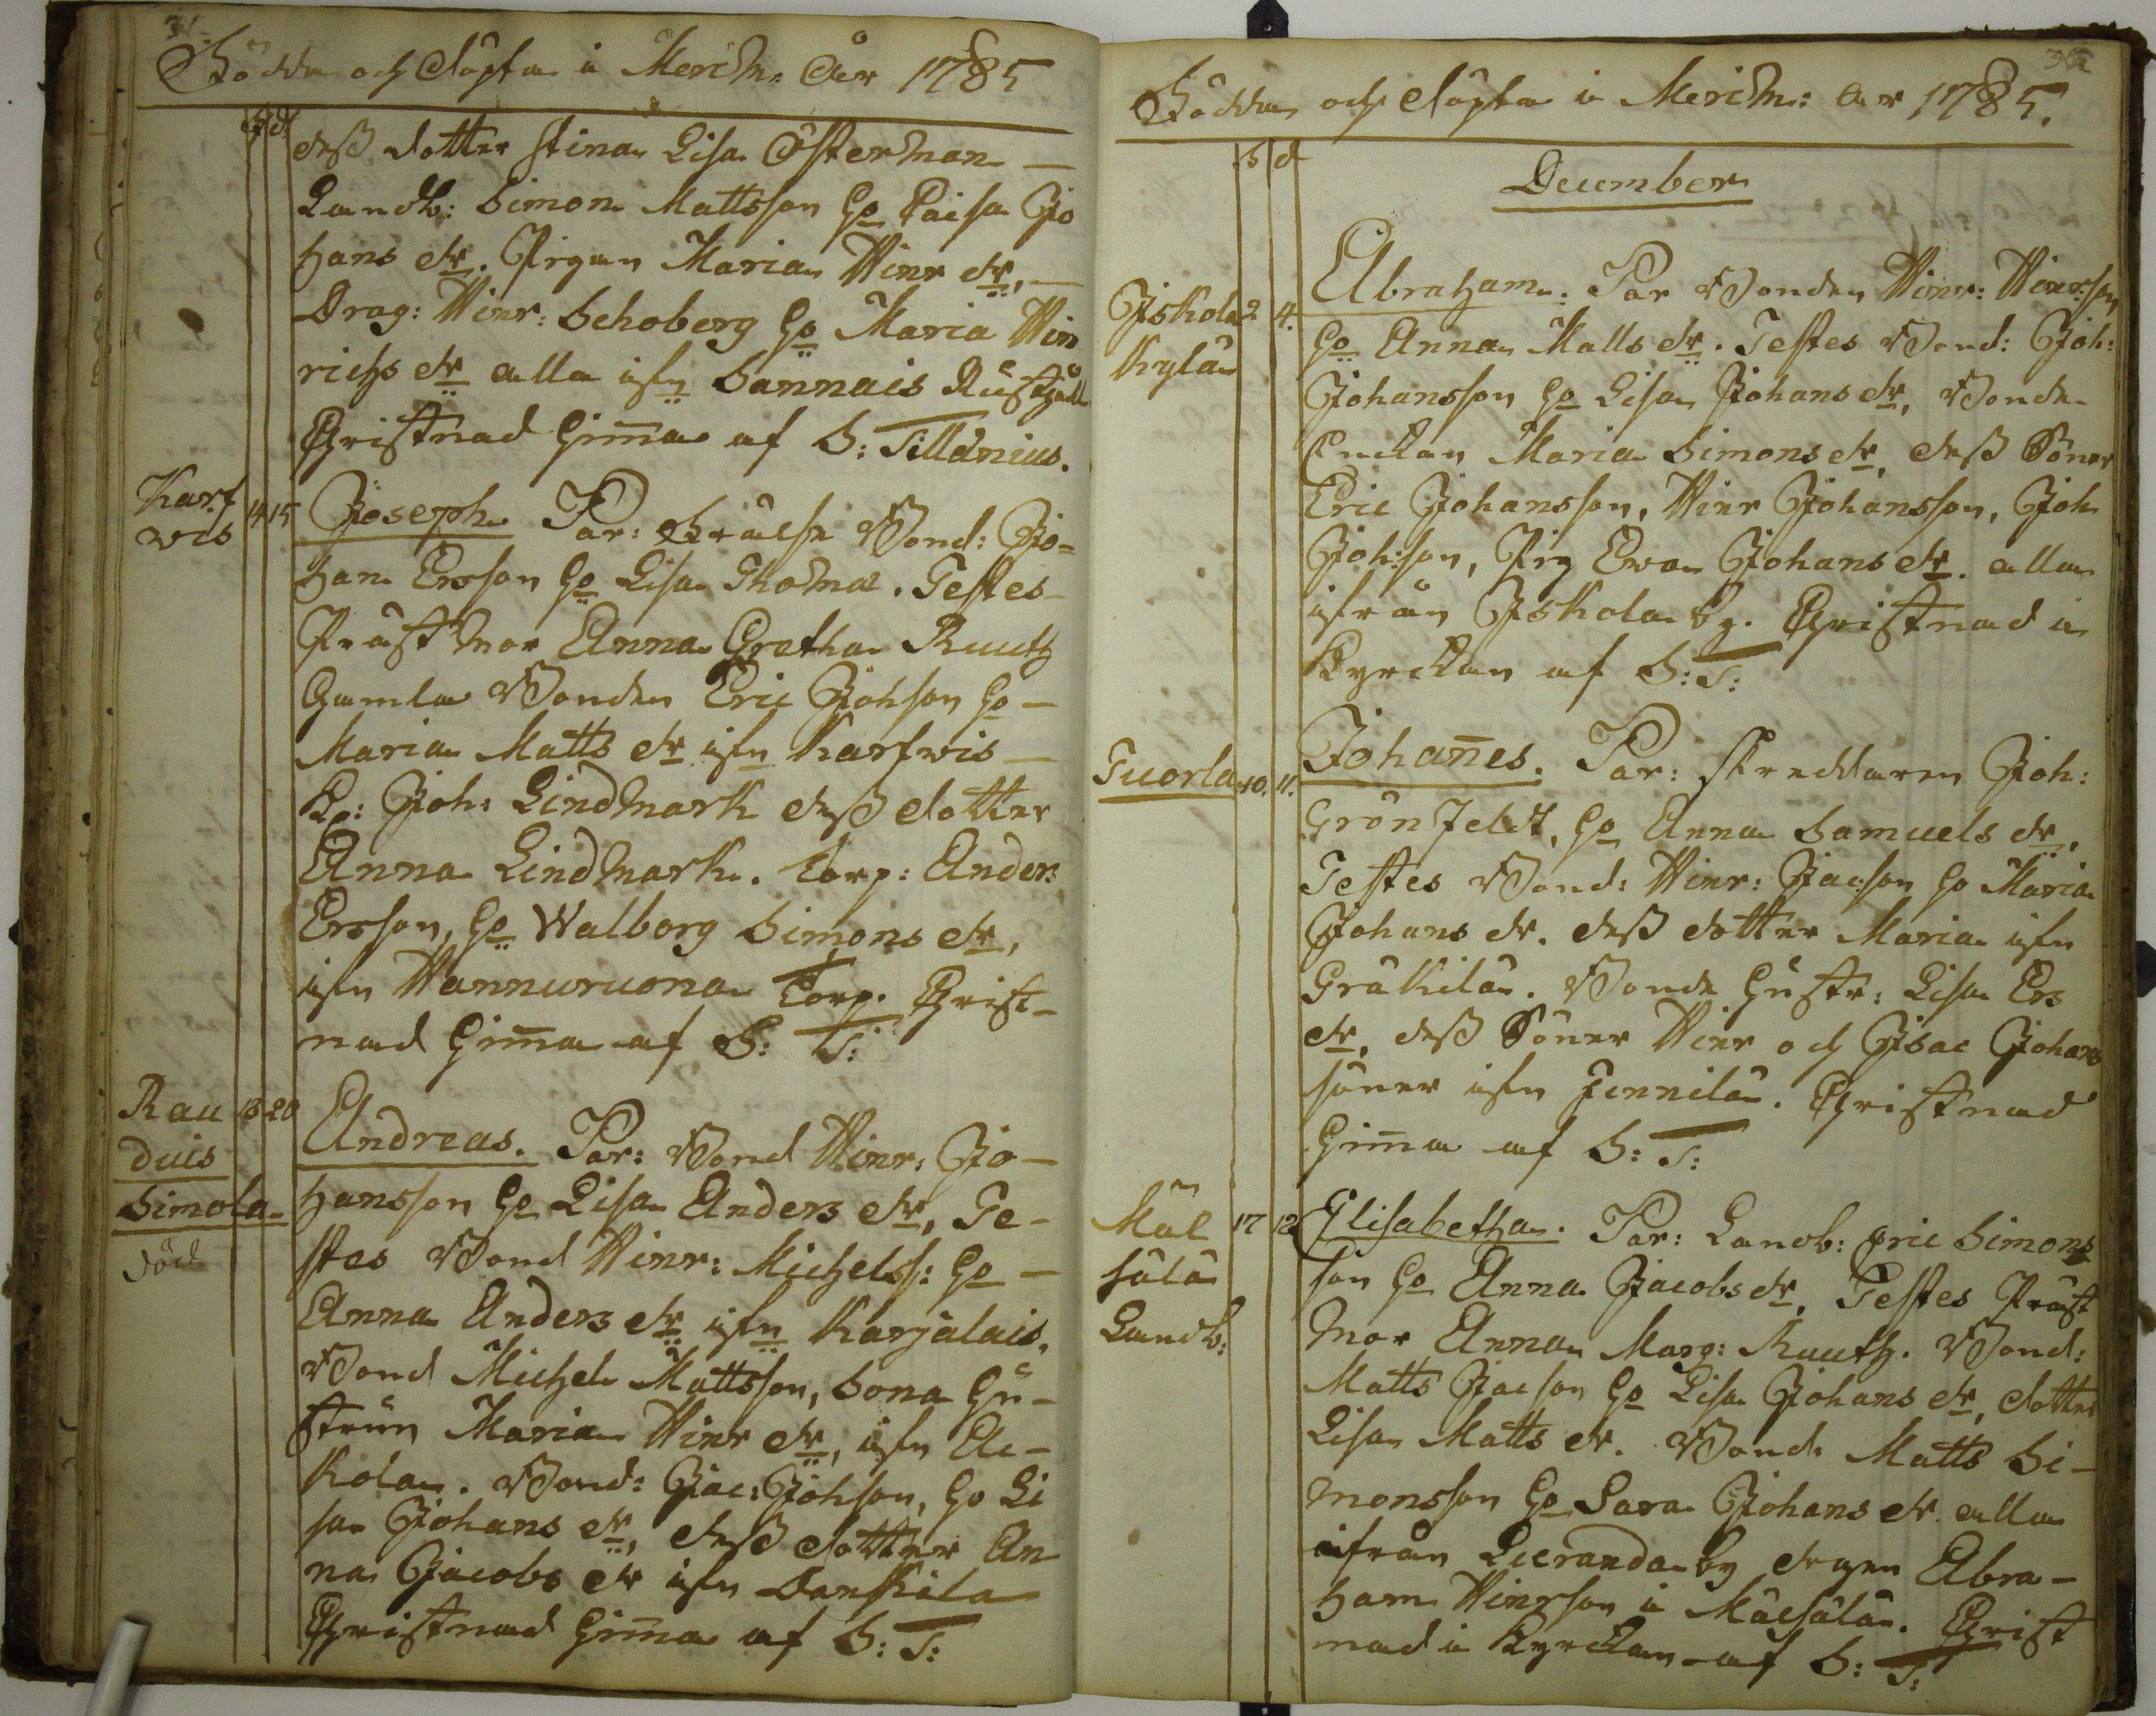 31.
Födde och döpte i Merim: Åar 1785
f d
dess dotter Stina Lisa Österman
Landb: Simon Mattsson ho Caisa Jo
hans dr. Pigan Maria Hinr dr,
Drag: Hinr: Schoberg ho Maria Hin
richs dr alla ifn Sannais Rusthåll
Christnad hemma af S: Tillænius.
Karf
vis
14 15
Joseph. Par: Frälse Bond: Jo=
han Ersson ho Lisa Thomæ. Testes
Präst mor Anna Gretha Ruuth
Gamla Bonden Eric Johson ho
Maria Matts dr ifn Karfvis
Joh: Lindmark dess dotter
Anna Lindmark. Torp: Anders
Ersson, ho Walborg Simons dr,
ifn Wannuruona Torp. Christ-
nad hemma af S: T:
Rau
duis
Simola
död
18 20
Andreas. Par: Bond Hinr: Jo-
hansson ho Lisa Anders dr, Te-
stes Bond Hinr: Michelss: ho
Anna Anders dr ifn Karjalais.
Bond Michel Mattsson, Sona hu-
strun Maria Hinr dr, ifn Ac-
kola. Bond: Jac: Johson, ho Li
sa Johans dr, dess dotter An
na Jacobs dr ifn Dankila
Christnad hemma af S: T:
32
Födde och döpte i Merim: Åar 1785.
f d
December
Iskola
kylä
2 4.
Abraham. Par Bonden Hinr: Hinrsson
ho Anna Matts dr. Testes Bond: Joh:
Johansson ho Lisa Johans dr, Bonde
Enckan Maria Simons dr, dess Söner
Eric Johansson, Hinr Johansson, Joh
Johson, Pig Ewa Johans dr. alla
ifrån Iskola by. Christnad i
Kyrckan af S: T:
Tuorla
10. 11.
Johannes. Par: Skreddaren Joh:
Grönfeldt, ho Anna Samuels dr,
Testes Bond: Hinr: Jacson ho Maria
Johans dr. dess dotter Maria ifn
Gräkilä. Bonde hustr: Lisa Ers
dr, dess Söner Hinr och Isac Johans
söner ifn Junnila. Christnad
hemma af S: T:
Mäl
sälä
Landb:
17 18
Elisabetha. Par: Landb: Eric Simons
son ho Anna Jacobs dr, Testes Präst
mor Anna Marg: Ruuth. Bond:
Matts Jacson ho Lisa Johans dr, dotter
Lisa Matts dr. Bond: Matts Si-
monsson ho Sara Johans dr. alla
ifrån Lieranda by drgen Abra-
ham Hinrson i Mälsälä. Christ
nad i Kyrckan af S: T: